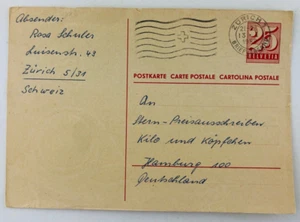 Absender:
Rosa Schuler
Luisenstr. 43
Zürich 5/31
Schweiz
ZÜRICH
25
HELVETIA
POSTKARTE CARTE POSTALE CARTOLINA POSTALE
An
Stern-Preisausschreiben
Kilo und Köpfchen
Hamburg 100
Deutschland